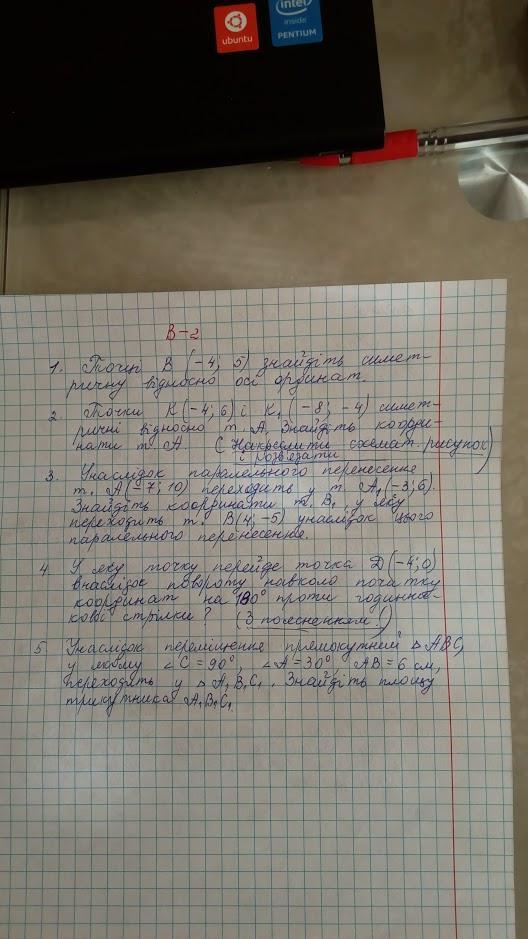 ubuntu
intel
inside
PENTIUM
В-2
1. Точці В (-4; 5) знайдіть симет-
ричну відносно осі ординат.
2. Точки К(-4; 6) і К₁ (-8; -4) симет-
ричні відносно т. А. Знайдіть коорди-
нати т. А (Накреслити схемат. рисунок
і розв'язати)
3. Унаслідок паралельного перенесення
т. А(-7; 10) переходить у т. А₁(-3; 6).
Знайдіть координати т. В₁, у яку
переходить т. В(4; -5) унаслідок цього
паралельного перенесення.
4. У яку точку перейде точка D(-4; 0)
внаслідок повороту навколо початку
координат на 180° проти годинни-
кової стрілки? (З поясненням!)
5. Унаслідок переміщення прямокутний △ АВС,
у якому ∠С = 90°, ∠А = 30°, АВ = 6 см,
переходить у △ А₁В₁С₁. Знайдіть площу
трикутника А₁В₁С₁.